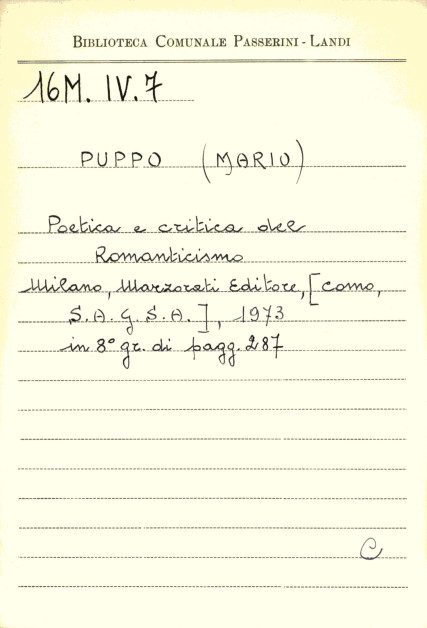 BIBLIOTECA COMUNALE PASSERINI - LANDI
16M. IV. 7
PUPPO (MARIO)
Poetica e critica del
Romanticismo
Milano, Marzorati Editore, [Como,
S.A.G.S.A.], 1973
in 8° gr. di pagg. 287
C